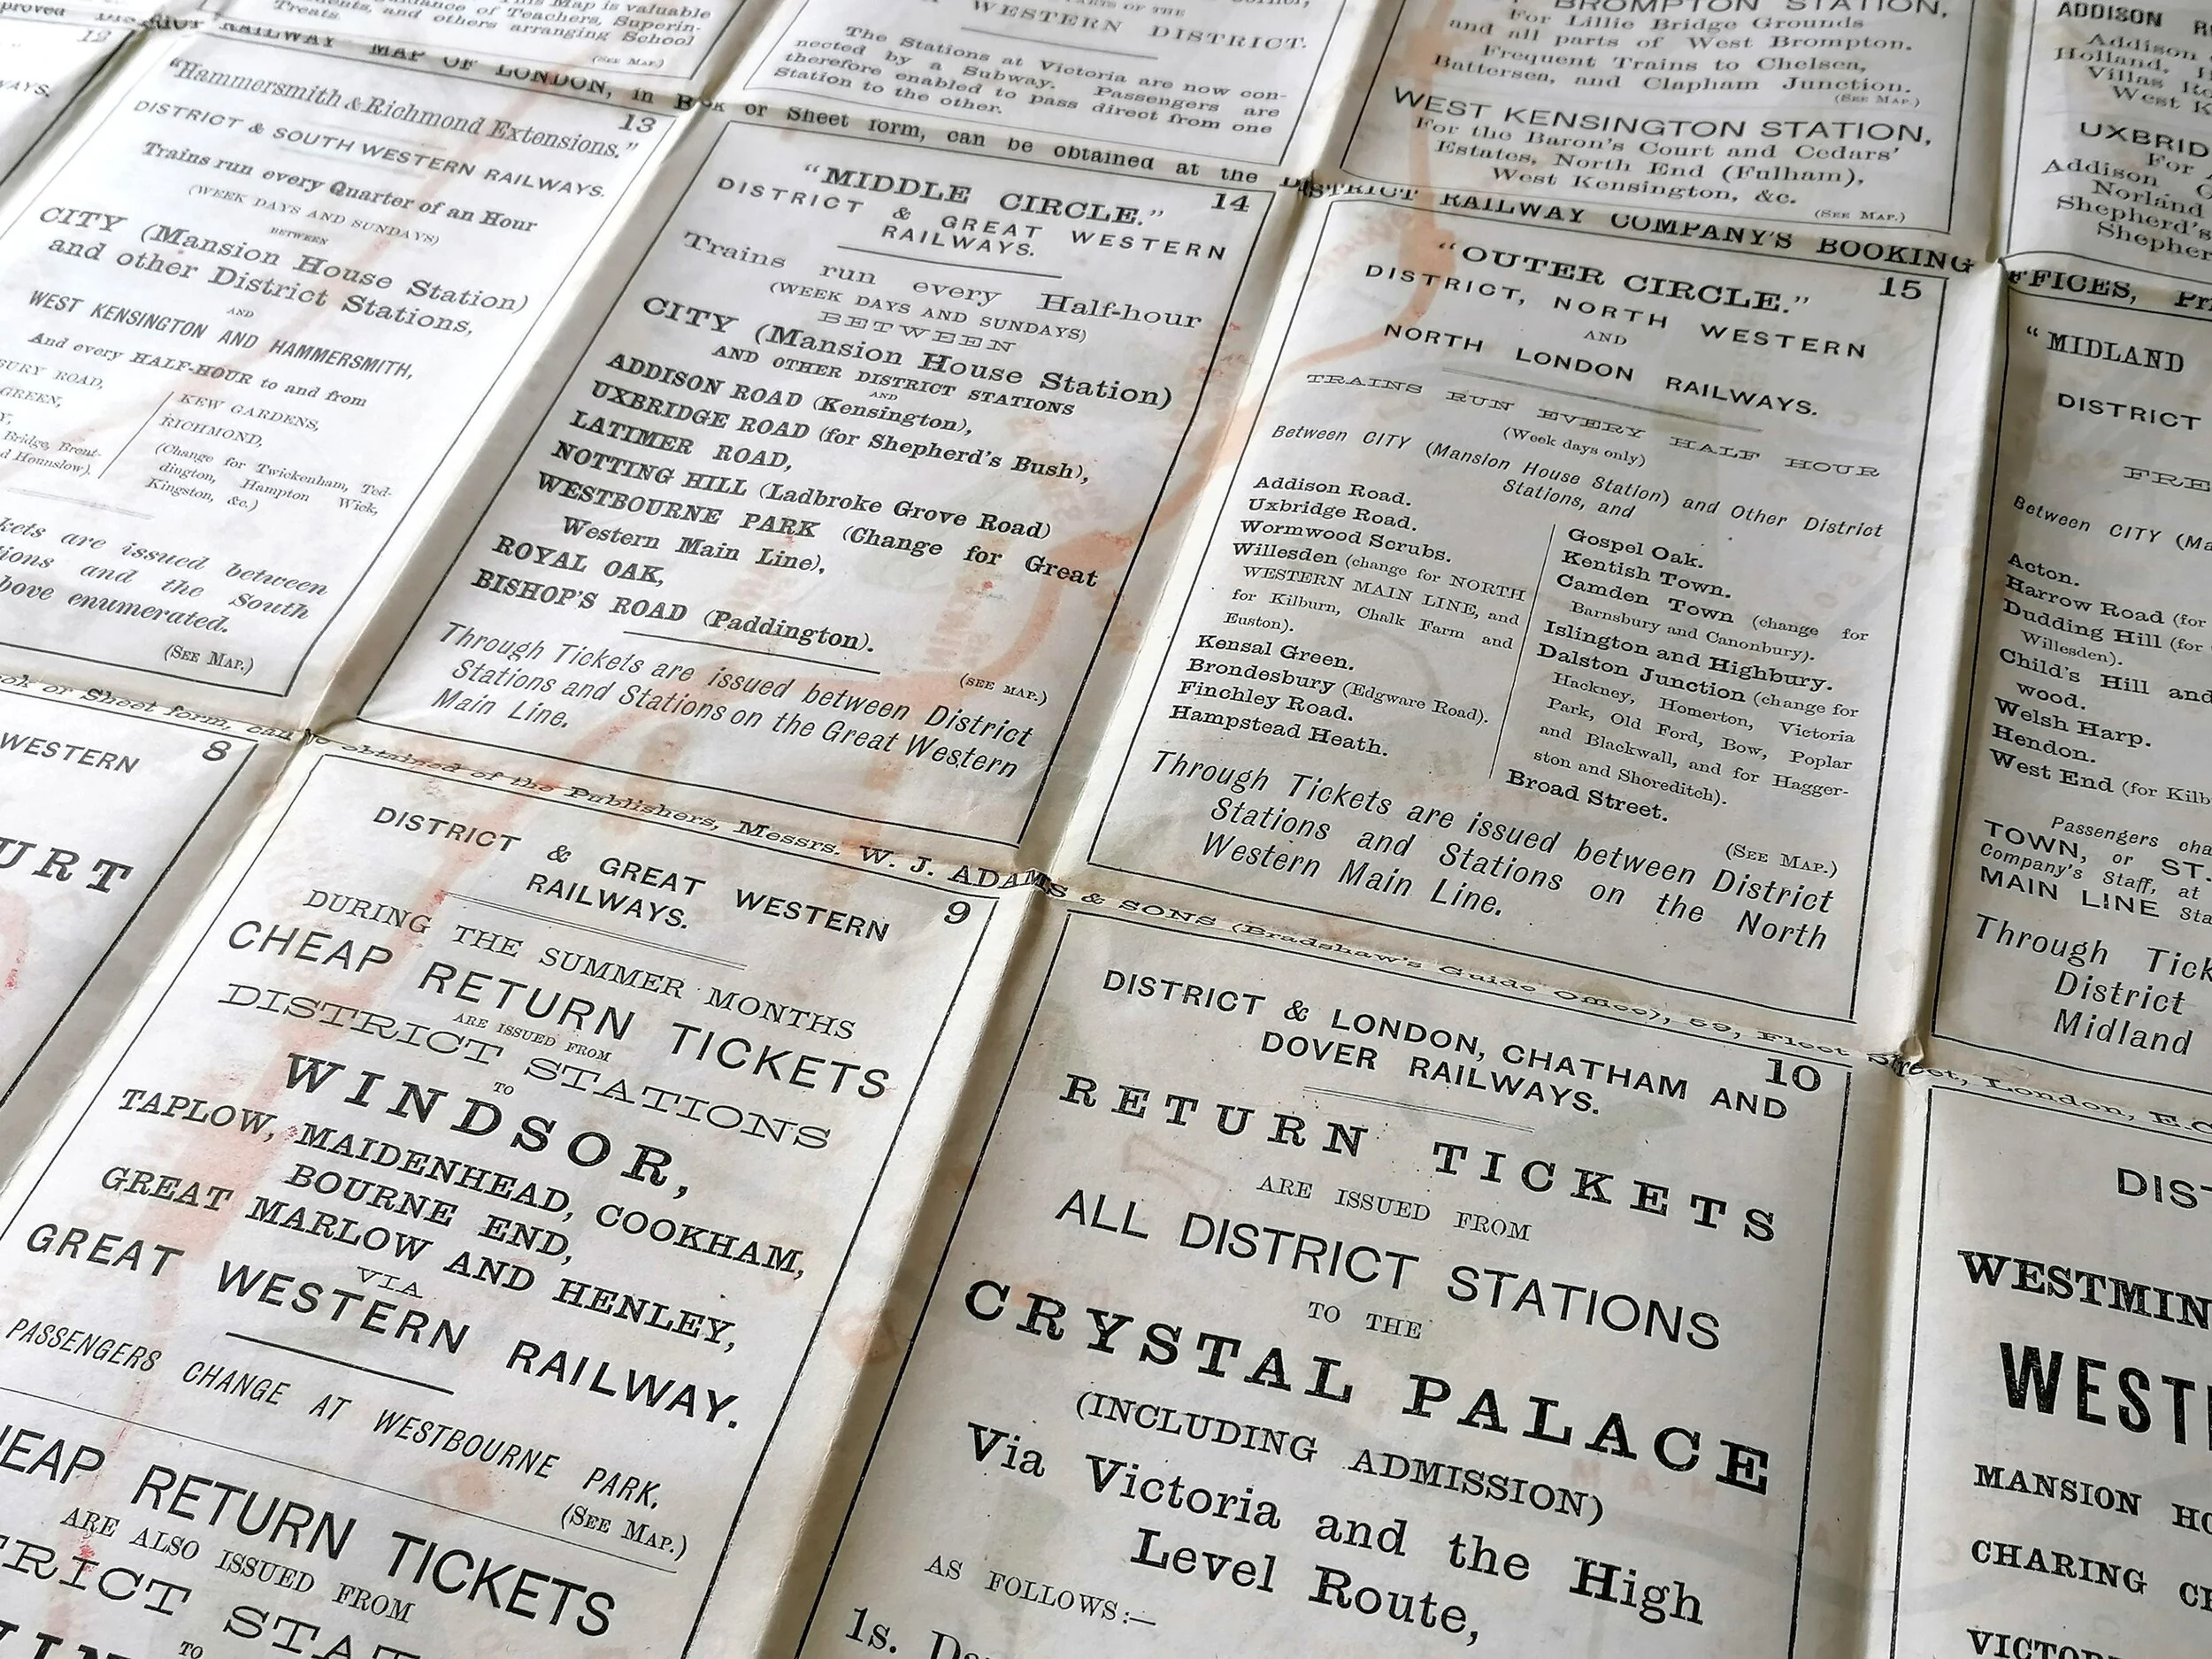 proved
12
WAYS.
This Map is valuable
ance of Teachers, Superin-
ents, and others arranging School
Treats.
(SEE MAP.)
WESTERN DISTRICT.
The Stations at Victoria are now con-
nected by a Subway. Passengers are
therefore enabled to pass direct from one
Station to the other.
BROMPTON STATION,
For Lillie Bridge Grounds
and all parts of West Brompton.
Frequent Trains to Chelsea,
Battersea, and Clapham Junction.
(SEE MAP.)
WEST KENSINGTON STATION,
For the Baron's Court and Cedars'
Estates, North End (Fulham),
West Kensington, &c.
(SEE MAP.)
ADDISON R
Addison
Holland,
Villas Ro
West K
UXBRID
For
Addison
Norland
Shepherd's
Shepher
DISTRICT RAILWAY MAP OF LONDON, in Book or Sheet form, can be obtained at the DISTRICT RAILWAY COMPANY'S BOOKING OFFICES, Pri
13
"Hammersmith & Richmond Extensions."
DISTRICT & SOUTH WESTERN RAILWAYS.
Trains run every Quarter of an Hour
(WEEK DAYS AND SUNDAYS)
BETWEEN
CITY (Mansion House Station)
and other District Stations,
AND
WEST KENSINGTON AND HAMMERSMITH,
And every HALF-HOUR to and from
BURY ROAD,
GREEN,
Y,
Bridge, Brent-
d Hounslow).
KEW GARDENS,
RICHMOND,
(Change for Twickenham, Ted-
dington, Hampton Wick,
Kingston, &c.)
kets are issued between
ions and the South
bove enumerated.
(SEE MAP.)
14
"MIDDLE CIRCLE."
DISTRICT & GREAT WESTERN
RAILWAYS.
Trains run every Half-hour
(WEEK DAYS AND SUNDAYS)
BETWEEN
CITY (Mansion House Station)
AND OTHER DISTRICT STATIONS
AND
ADDISON ROAD (Kensington),
UXBRIDGE ROAD (for Shepherd's Bush),
LATIMER ROAD,
NOTTING HILL (Ladbroke Grove Road)
WESTBOURNE PARK (Change for Great
Western Main Line),
ROYAL OAK,
BISHOP'S ROAD (Paddington).
(SEE MAP.)
Through Tickets are issued between District
Stations and Stations on the Great Western
Main Line.
15
"OUTER CIRCLE."
DISTRICT, NORTH WESTERN
AND
NORTH LONDON RAILWAYS.
TRAINS RUN EVERY HALF HOUR
(Week days only)
Between CITY (Mansion House Station) and Other District
Stations, and
Addison Road.
Uxbridge Road.
Wormwood Scrubs.
Willesden (change for NORTH
WESTERN MAIN LINE, and
for Kilburn, Chalk Farm and
Euston).
Kensal Green.
Brondesbury (Edgware Road).
Finchley Road.
Hampstead Heath.
Gospel Oak.
Kentish Town.
Camden Town (change for
Barnsbury and Canonbury).
Islington and Highbury.
Dalston Junction (change for
Hackney, Homerton, Victoria
Park, Old Ford, Bow, Poplar
and Blackwall, and for Hagger-
ston and Shoreditch).
Broad Street.
(SEE MAP.)
Through Tickets are issued between District
Stations and Stations on the North
Western Main Line.
"MIDLAND
DISTRICT
FRE
Between CITY (Ma
Acton.
Harrow Road (for
Dudding Hill (for
Willesden).
Child's Hill and
wood.
Welsh Harp.
Hendon.
West End (for Kilb
Passengers cha
TOWN, or ST.
Company's Staff, at
MAIN LINE Sta
Through Tick
District
Midland
ook or Sheet form, can be obtained of the Publishers, Messrs. W. J. ADAMS & SONS (Bradshaw's Guide Office), 59, Fleet Street, London, E.C
8
WESTERN
URT
9
DISTRICT & GREAT WESTERN
RAILWAYS.
DURING THE SUMMER MONTHS
CHEAP RETURN TICKETS
ARE ISSUED FROM
DISTRICT STATIONS
TO
WINDSOR,
TAPLOW, MAIDENHEAD, COOKHAM,
BOURNE END,
GREAT MARLOW AND HENLEY,
VIA
GREAT WESTERN RAILWAY.
PASSENGERS CHANGE AT WESTBOURNE PARK.
(SEE MAP.)
HEAP RETURN TICKETS
ARE ALSO ISSUED FROM
TRICT STAT
TO
10
DISTRICT & LONDON, CHATHAM AND
DOVER RAILWAYS.
RETURN TICKETS
ARE ISSUED FROM
ALL DISTRICT STATIONS
TO THE
CRYSTAL PALACE
(INCLUDING ADMISSION)
Via Victoria and the High
Level Route,
AS FOLLOWS:—
1s.
DIST
WESTMIN
WEST
MANSION HO
CHARING CR
VICTOR